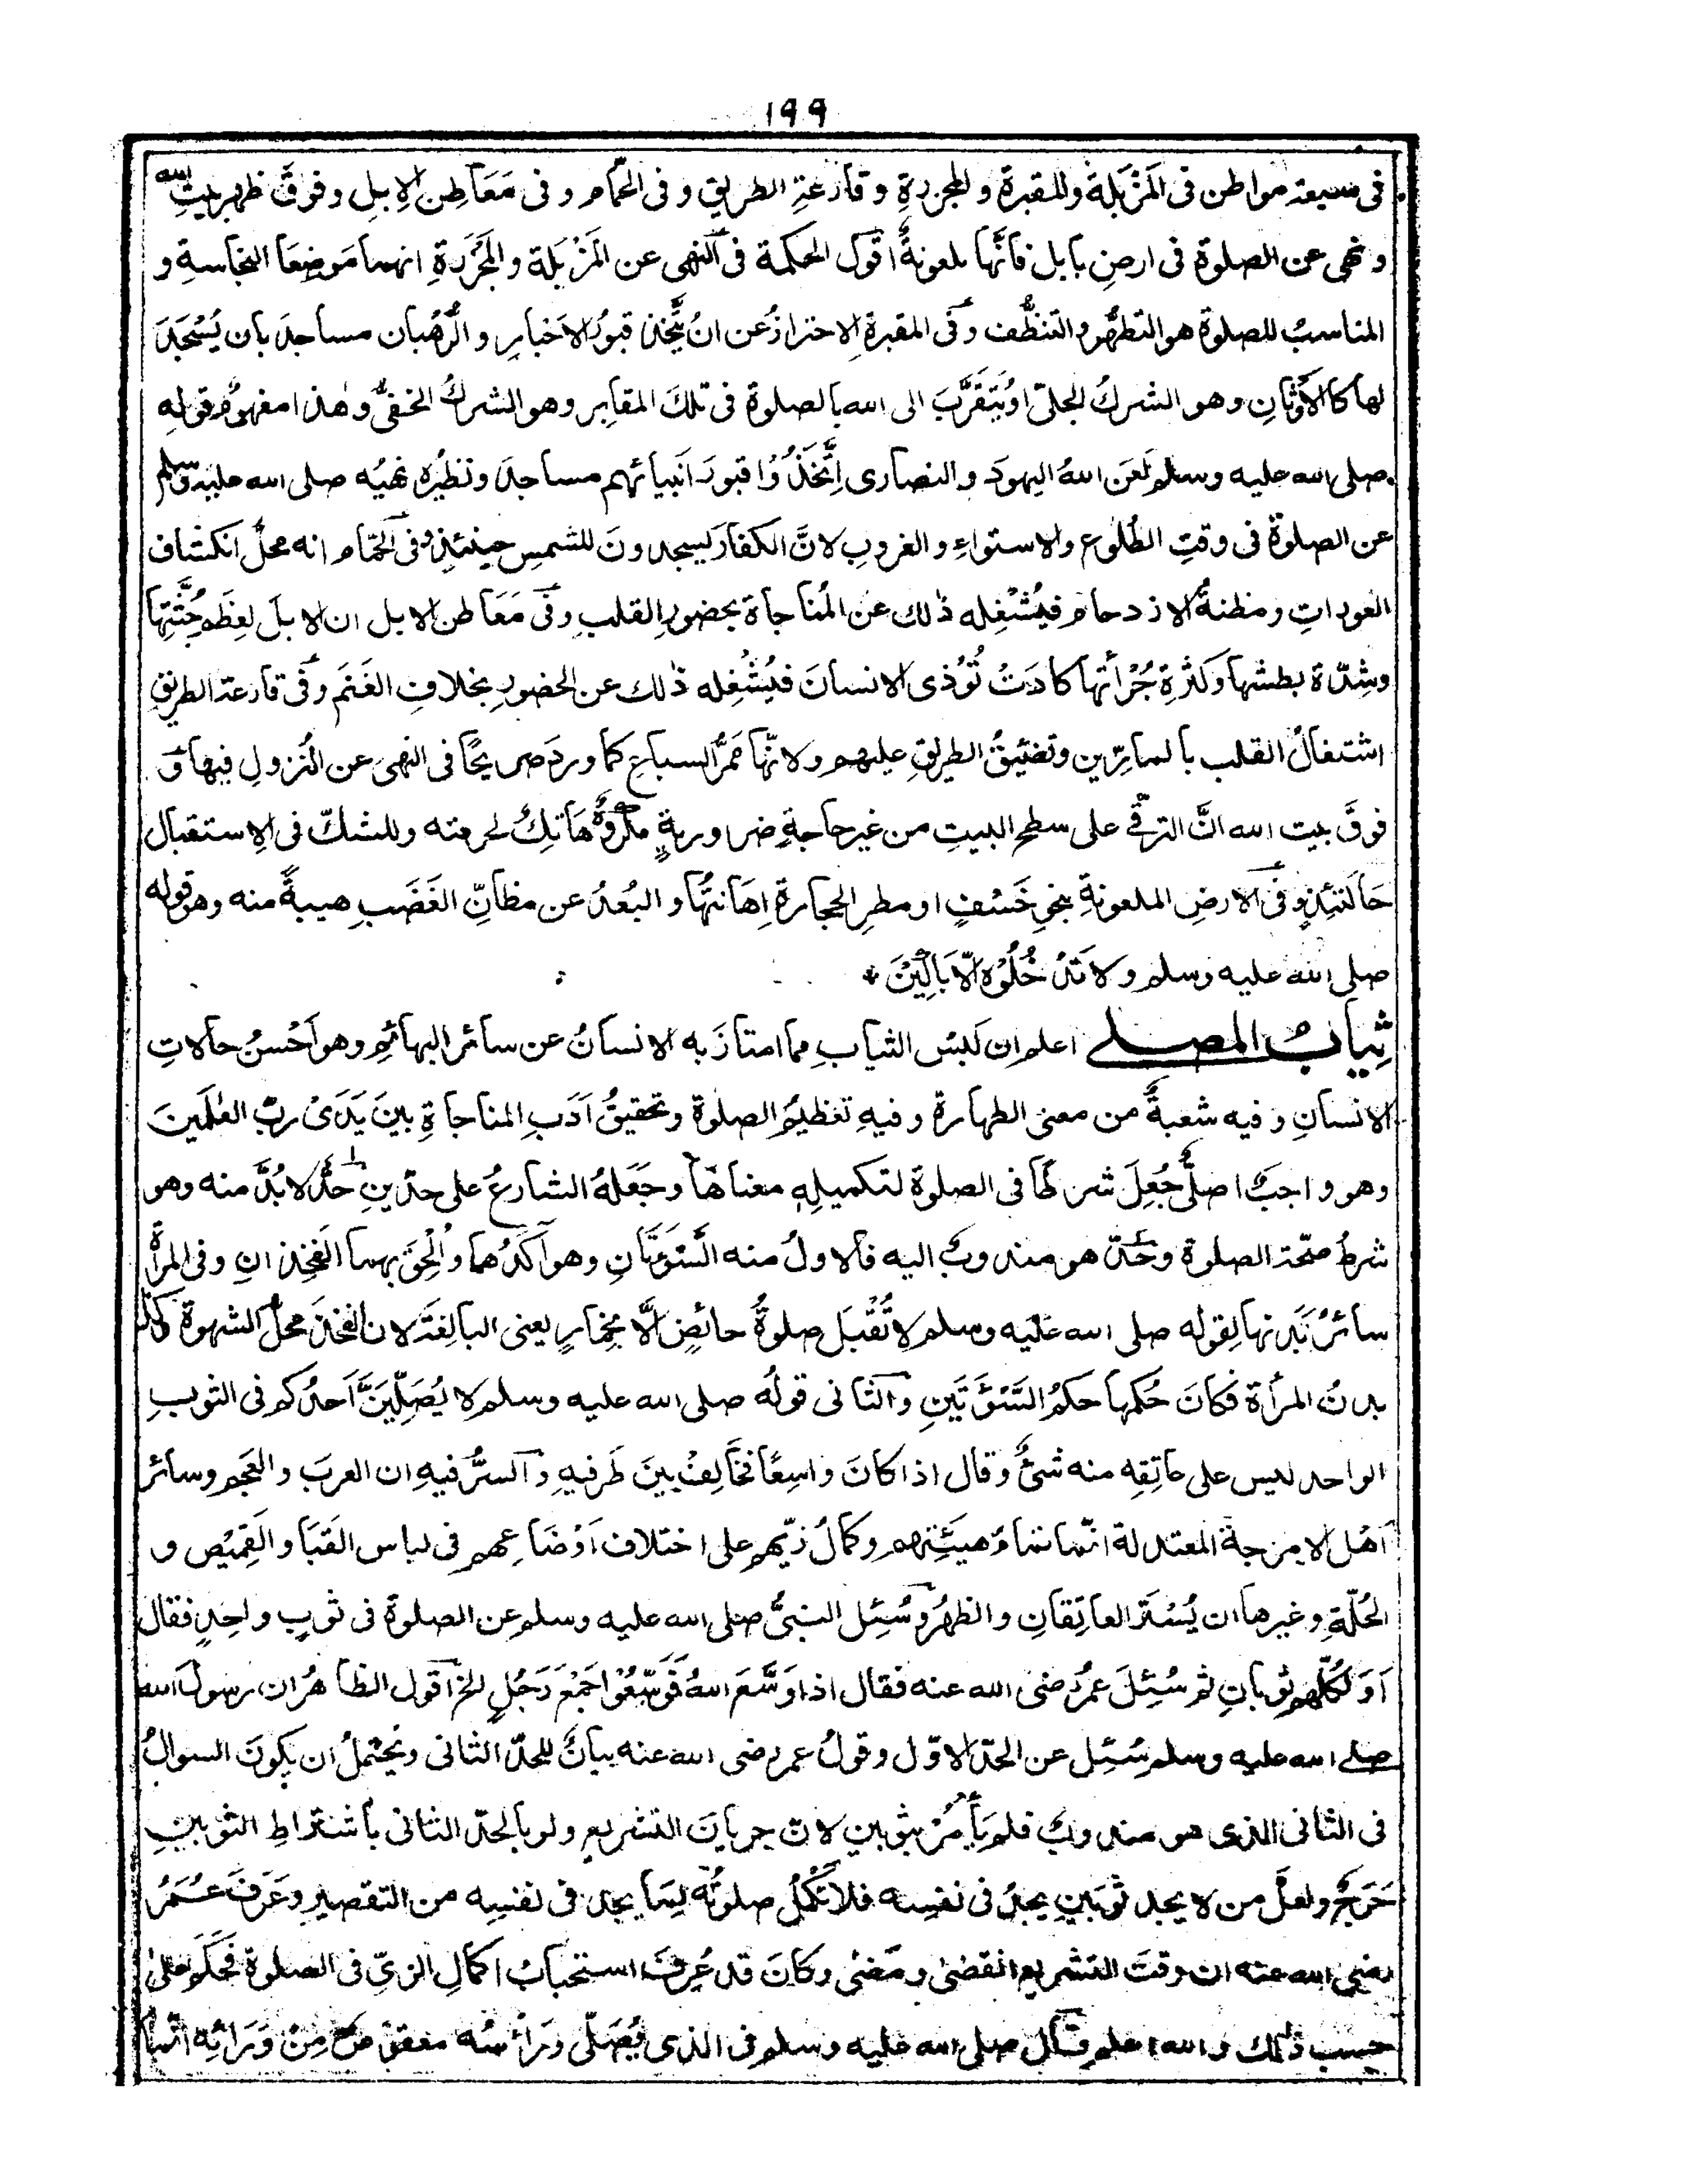 ١٩٩
فى سبعة مواطن فى المَزْبَلة والمقبرة والمجزرةِ وقارعةِ الطريقِ وفى الحمّام وفى مَعَاطِن الاِبلِ وفوقَ ظهر بيتِ الله
ونهى عن الصلوة فى ارض بابل فانّها ملعونةٌ اقول الحكمة فى النهى عن المَزْبَلة والمَجْزرةِ انهما مَوضِعَا النجاسةِ و
المناسبُ للصلوة هو التطهّر والتنظّف وفى المقبرة الاحترازُ عن انْ يُتَّخذ قبورُ الاَحبارِ والرُّهبان مساجدَ بان يُسْجَدَ
لها كالاَوْثانِ وهو الشركُ الجلىّ او يُتَقَرَّبَ الى الله بالصلوة فى تلكَ المقابرِ وهو الشركُ الخفىُّ وهٰذا مفهومُ قوله
صلى الله عليه وسلم لَعَن اللهُ اليهودَ والنصارى اِتَّخَذُوْا قبورَ اَنبيائهم مساجدَ ونظيرُه نهيُه صلى الله عليه وسلم
عن الصلوةِ فى وقتِ الطُلوع والاستواءِ والغروبِ لانَّ الكفارَ يسجدونَ للشمسِ حينئذٍ وفى الحمّام انه محلُّ انكشاف
العوراتِ ومظنةُ الازدحام فيُشْغِله ذٰلك عن المُناجاة بحضورِ القلبِ وفى مَعَاطن الابل ان الابلَ لعِظَم جُثَّتِها
وشِدّة بطشها وكَثْرةِ جُرْأتها كادَتْ تُوْذى الانسانَ فيُشْغِله ذٰلك عن الحضورِ بخلافِ الغَنَم وفى قارعة الطريقِ
اشتغالُ القلب بالمارّين وتضييقُ الطريقِ عليهم ولانّها مَمَرُّ السباعِ كما وردَ صريحًا فى النهى عن النُزولِ فيها وَ
فوقَ بيت الله انَّ الترقّى على سطح البيتِ من غير حاجةٍ ضروريةٍ مكروهٌ هَاتِكٌ لحرمته وللشكّ فى الاستقبال
حَالتئذٍ وفى الارضِ الملعونةِ بنحوِ خَسْفٍ او مطرِ الحجارة اِهَانتُها والبُعدُ عن مظانّ الغَضَبِ هيبةً منه وهو قوله
صلى الله عليه وسلم ولا تَدْخُلُوْه الّا بَاكِيْنَ ٭
ثيابُ المصلے اعلم ان لَبْسَ الثيابِ مما امتازَ به الانسانُ عن سائر البهائمِ وهو اَحْسنُ حالاتِ
الانسانِ وفيه شعبةٌ من معنى الطهارة وفيهِ تعظيمُ الصلوة وتحقيقُ اَدَبِ المناجاةِ بينَ يَدَىْ ربّ العٰلَمينَ
وهو واجبٌ اصلىٌّ جُعِلَ شرطًا فى الصلوة لتكميلِهٖ معناها وجَعَلهُ الشارعُ على حدّينِ حدٌّ لا بُدَّ منه وهو
شرطُ صحّة الصلوة وحَدٌّ هو مندوبٌ اليه فالاولُ منه السَّوءتانِ وهو آكدُهما واُلْحِقَ بهما الفخذانِ وفى المرأة
سائرُ بَدنها لقوله صلى الله عليه وسلم لا تُقْبَل صلوةُ حائضٍ الَّا بخمارٍ يعنى البالِغةَ لان الفخذَ محلُّ الشهوة وكذا
بدنُ المرأة فكانَ حُكمها حكمَ السَّوْءَتَينِ والثانى قولُه صلى الله عليه وسلم لا يُصَلِّيَنَّ اَحدُكم فى الثوبِ
الواحد ليس على عاتِقِهِ منه شئٌ وقال اذا كانَ واسِعًا فخَالِفْ بينَ طَرفيهِ والسرُّ فيهِ ان العربَ والعجم وسائرَ
اَهْل الامزجة المعتدلة انّما تمامُ هيئتهم وكمالُ زيّهم على اختلاف اَوْضَاعِهم فى لباس القَبَا والقميْص و
الحُلّةِ وغيرها ان يُسْتَر العاتِقانِ والظهرُ وسُئِل النبىُّ صلى الله عليه وسلم عن الصلوة فى ثوبٍ واحِدٍ فقال
اَوَ لكُلّهم ثوبانِ ثم سُئِلَ عمرُ رضى الله عنه فقال اذا وَسَّعَ اللهُ فَوَسِّعُوْا جَمَعَ رَجُلٌ الخ اقول الظاهرُ ان رسولَ الله
صلے الله عليه وسلم سُئِل عن الحدّ الاوّل وقولُ عمر رضى الله عنه بيانٌ للحدّ الثانى ويَحتملُ ان يكونَ السوالُ
فى الثانى الذى هو مندوبٌ فلم يَأْمُرْ بثوبين لان جريانَ التشريعِ ولو بالحدّ الثانى باشتراطِ الثوبينِ
حَرَجٌ ولعلَّ من لا يجد ثوبَينِ يجدُ فى نفسِه فلا تَكْمُلُ صلوتُه لِمَا يجد فى نفسِه من التقصيرِ وعَرفَ عُمَرُ
رضى الله عنه ان وقتَ التشريع انقضىٰ ومَضىٰ وكانَ قد عُرِفَ استحبابُ اكمالِ الزىّ فى الصلوة فحَكَمَ علىٰ
حسبِ ذٰلك والله اعلم وقال صلى الله عليه وسلم فى الذى يُصَلّى ورَأسُه معقوصٌ مِنْ وَرَائِه انّما